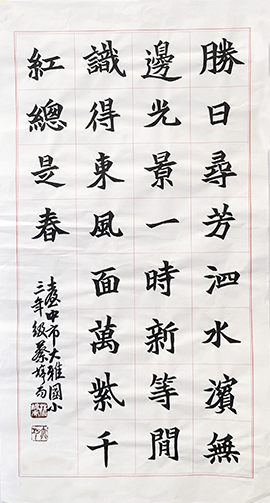 勝日尋芳泗水濱無
邊光景一時新等閒
識得東風面萬紫千
紅總是春
臺中市大雅國小
三年級蔡